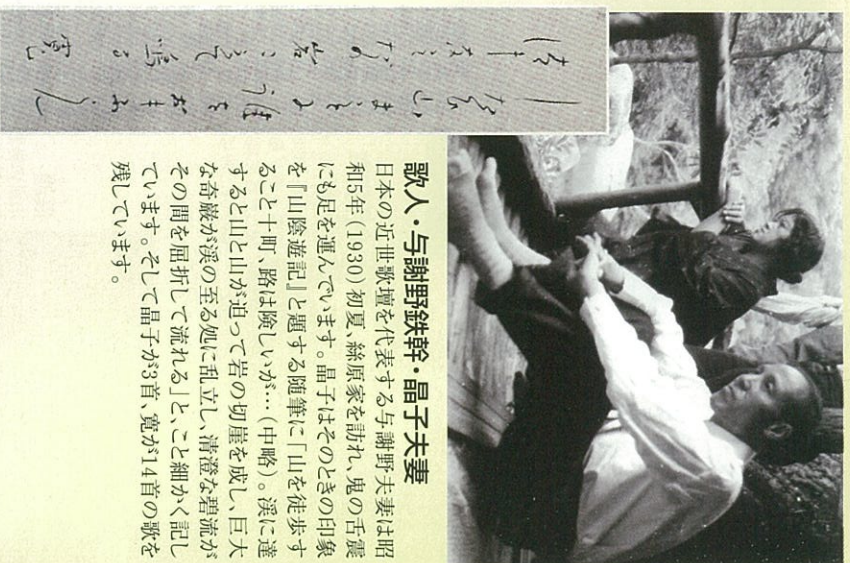 歌人・与謝野鉄幹・晶子夫妻
日本の近世歌壇を代表する与謝野夫妻は昭
和5年(1930)初夏、絲原家を訪れ、鬼の舌震
にも足を運んでいます。晶子はそのときの印象
を『山陰遊記』と題する随筆に「山を徒歩す
ること十町、路は険しいが…(中略)。渓に達
すると山と山が迫って岩の切崖を成し、巨大
な奇巌が渓の至る処に乱立し、清澄な碧流が
その間を屈折して流れる」と、こと細かく記し
ています。そして晶子が3首、寛が14首の歌を
残しています。